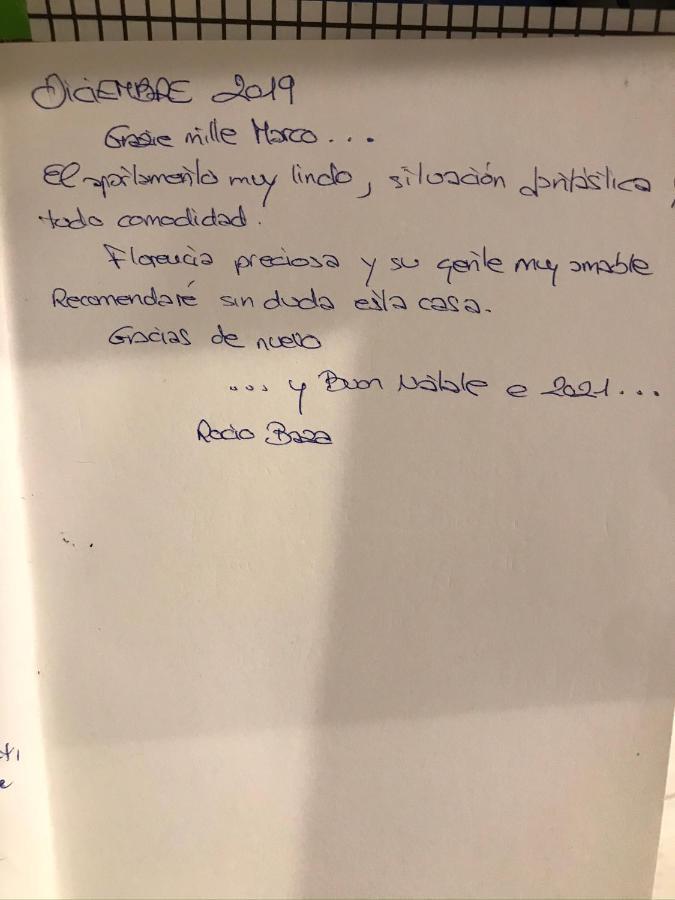 DICIEMBRE 2019
Grazie mille Marco...
El apartamento muy lindo, situación fantástica,
todo comodidad.
Florencia preciosa y su gente muy amable
Recomendaré sin duda esta casa.
Gracias de nuevo
... y Buon Natale e 2021...
Rocio Baza